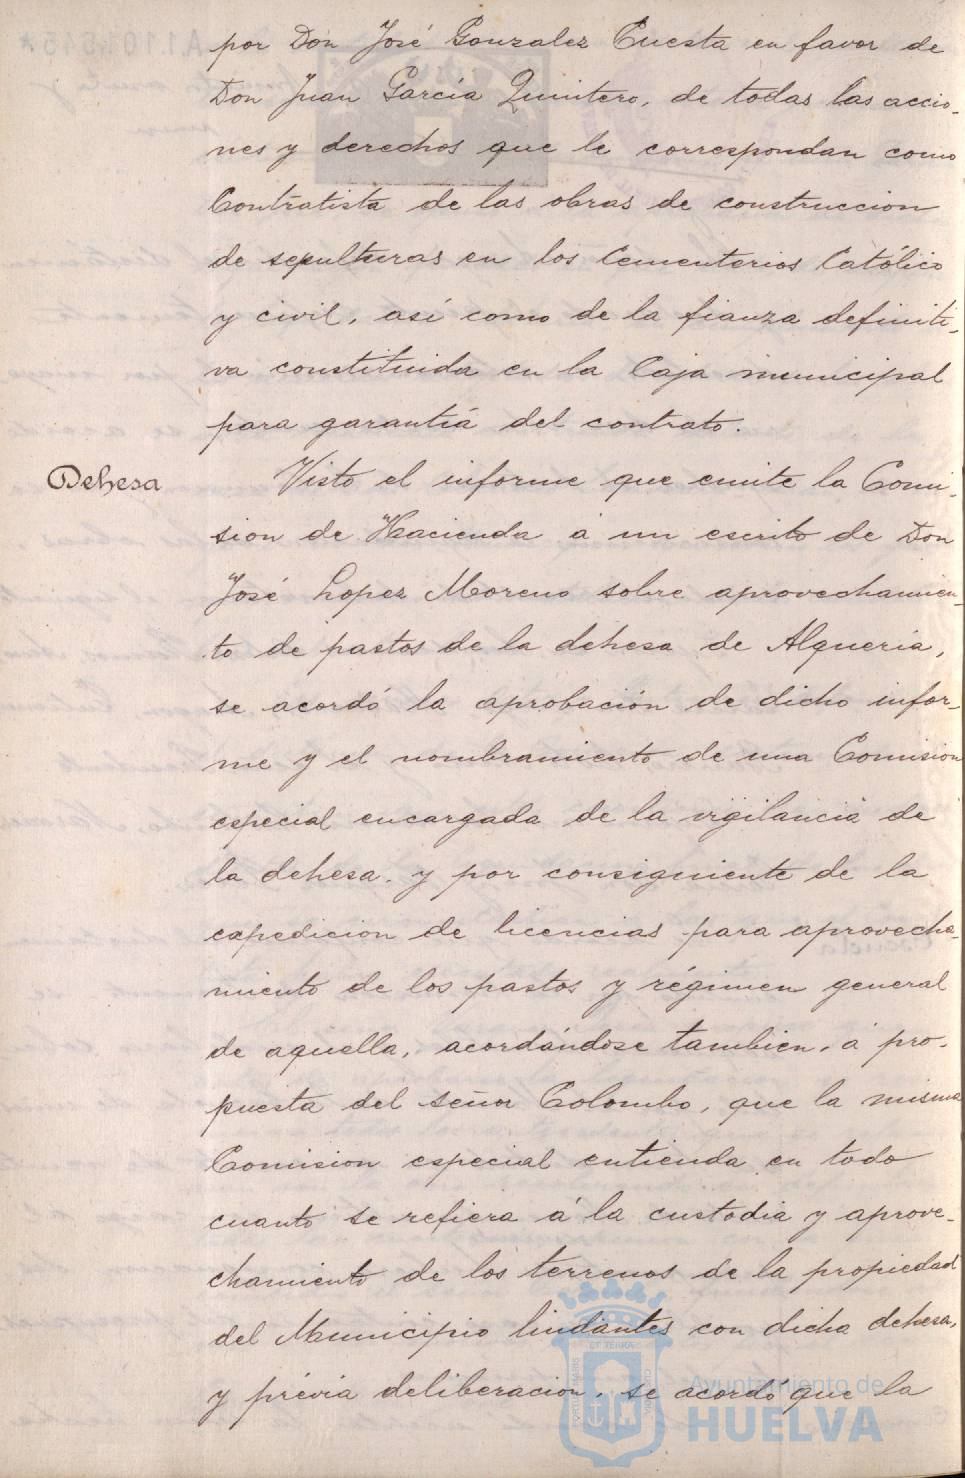 por Don José Gonzalez Cuesta en favor de
Don Juan García Quintero, de todas las accio-
nes y derechos que le correspondan como
Contratista de las obras de construccion
de sepulturas en los Cementerios Católico
y civil, así como de la fianza definiti-
va constituida en la Caja municipal
para garantía del contrato.
Dehesa
Visto el informe que emite la Comi-
sion de Hacienda á un escrito de Don
José Lopez Moreno sobre aprovechamien-
to de pastos de la dehesa de Alqueria,
se acordó la aprobación de dicho infor-
me y el nombramiento de una Comision
especial encargada de la vigilancia de
la dehesa, y por consiguiente de la
expedicion de licencias para aprovecha-
miento de los pastos y régimen general
de aquella, acordándose tambien, á pro-
puesta del señor Colombo, que la misma
Comision especial entienda en todo
cuanto se refiera á la custodia y aprove-
chamiento de los terrenos de la propiedad
del Municipio lindantes con dicha dehesa,
y prévia deliberacion, se acordó que la
Ayuntamiento de
HUELVA